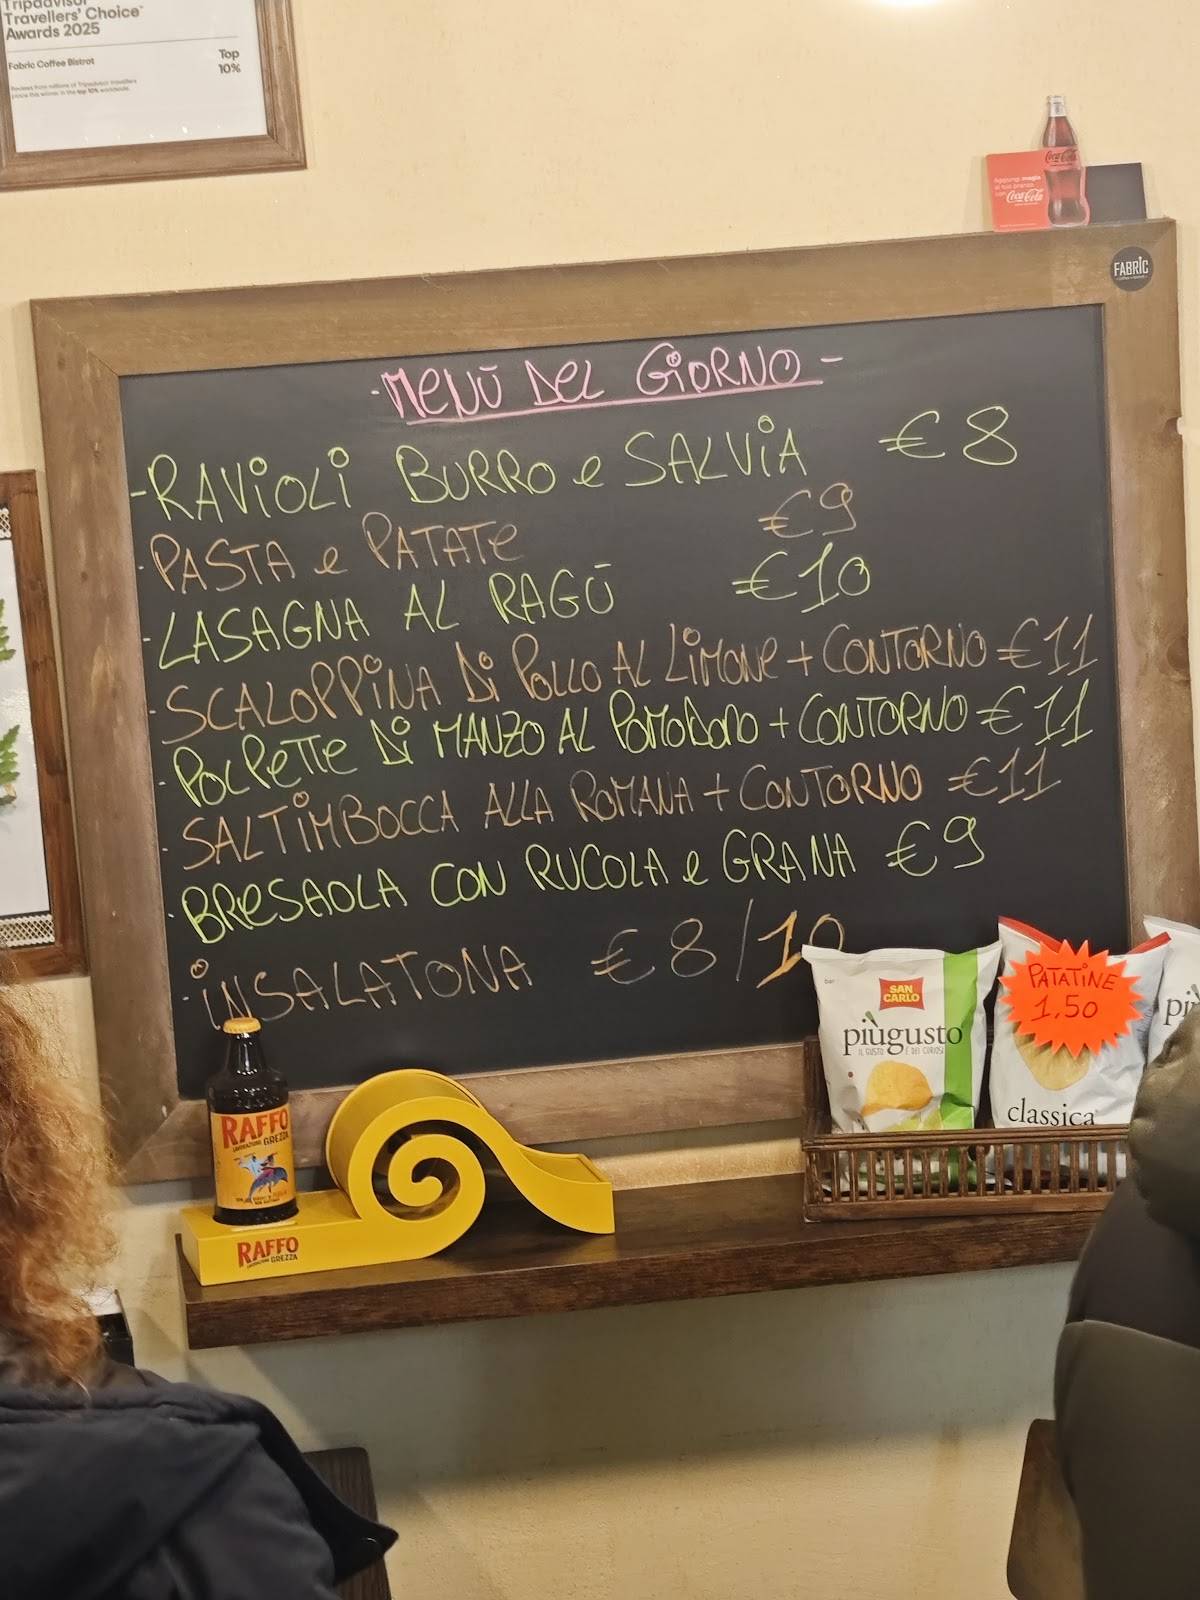 Tripadvisor
Travellers' Choice™
Awards 2025
Fabric Coffee Bistrot
Top
10%
Aggiungi magia
al tuo pranzo
con Coca-Cola
Coca-Cola
FABRIC
- MENÙ DEL GIORNO -
- RAVIOLI BURRO e SALVIA €8
- PASTA e PATATE €9
- LASAGNA AL RAGÙ €10
- SCALOPPINA DI POLLO AL LIMONE + CONTORNO €11
- POLPETTE DI MANZO AL POMODORO + CONTORNO €11
- SALTIMBOCCA ALLA ROMANA + CONTORNO €11
- BRESAOLA CON RUCOLA e GRANA €9
- INSALATONA €8/10
bar
SAN
CARLO
piùgusto
IL GUSTO È DEI CURIOSI
PATATINE
1,50
classica
più
RAFFO
LAVORAZIONE GREZZA
RAFFO
LAVORAZIONE GREZZA